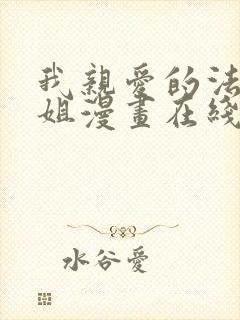 我親愛的法
姐漫畫在綫
水谷愛